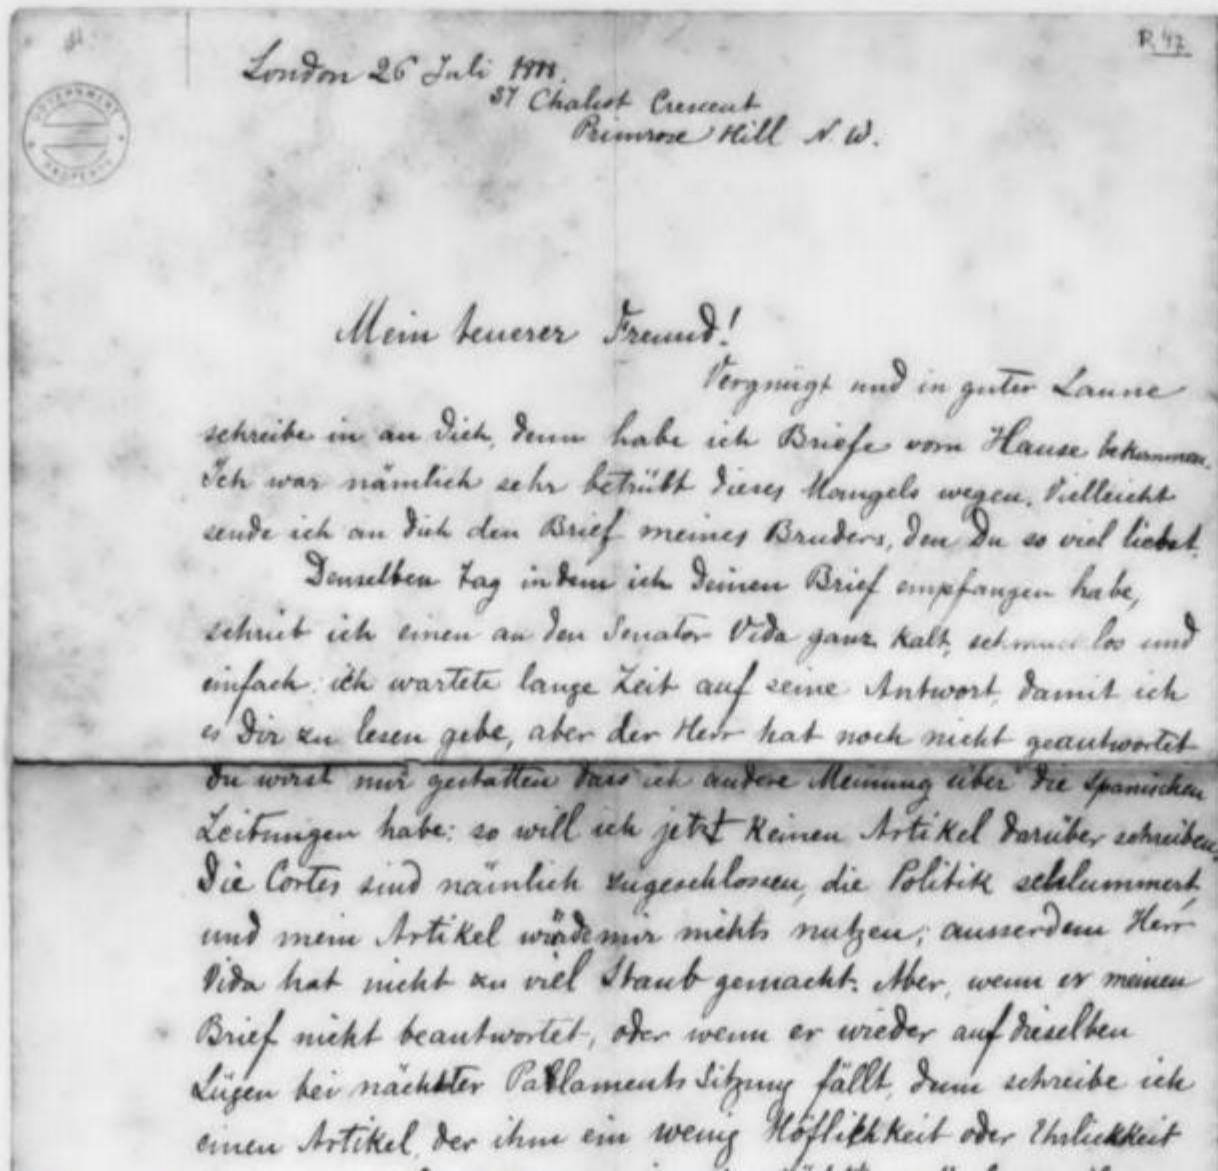 R. 47
GOVERNMENT PROPERTY
London 26 Juli 1888.
37 Chalcot Crescent
Primrose Hill N. W.
Mein teuerer Freund!
Vergnügt und in guter Laune
schreibe in an Dich, denn habe ich Briefe vom Hause bekommen.
Ich war nämlich sehr betrübt dieses Mangels wegen. Vielleicht
sende ich an Dich den Brief meines Bruders, den Du so viel liebst.
Denselben Tag in dem ich Deinen Brief empfangen habe,
schrieb ich einen an den Senator Vida ganz kalt, und
einfach: ich wartete lange Zeit auf seine Antwort, damit ich
es Dir zu lesen gebe, aber der Herr hat noch nicht geantwortet
Du wirst mir gestatten dass ich andere Meinung über die Spanischen
Zeitungen habe: so will ich jetzt keinen Artikel darüber schreiben.
Die Cortes sind nämlich zugeschlossen, die Politik schlummert,
und mein Artikel würde mir nichts nutzen; ausserdem Herr
Vida hat nicht zu viel Staub gemacht. Aber, wenn er meinen
Brief nicht beantwortet, oder wenn er wieder auf dieselben
Lügen bei nächster Parlaments Sitzung fällt, dann schreibe ich
einen Artikel, der ihm ein wenig Höflichkeit oder Ehrlichkeit